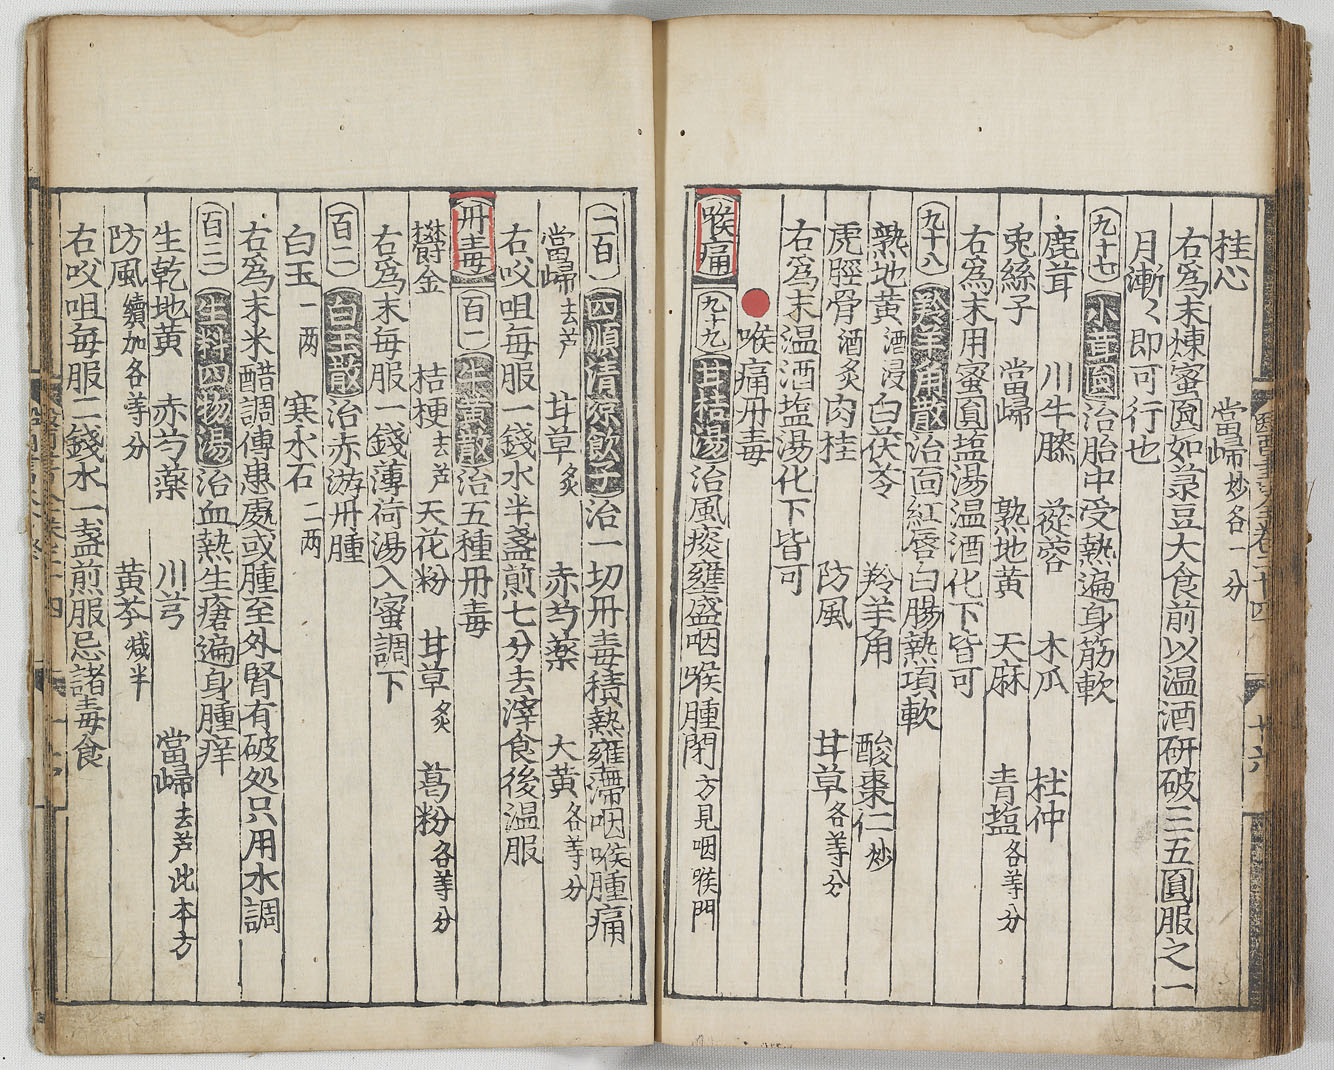 桂心　當歸炒各一分
右爲末煉蜜圓如菉豆大食前以温酒研破三五圓服之一
月漸〻即可行也
九十七　小茸圓治胎中受熱遍身筋軟
鹿茸　川牛膝　蓯蓉　木瓜　杜仲
兎絲子　當歸　熟地黄　天麻　青塩各等分
右爲末用蜜圓塩湯温酒化下皆可
九十八　羚羊角散治面紅唇白腸熱項軟
熟地黄酒浸　白茯苓　羚羊角　酸棗仁炒
虎脛骨酒炙　肉桂　防風　甘草各等分
右爲末温酒塩湯化下皆可
喉痛丹毒
喉痛　九十九　甘桔湯治風痰壅盛咽喉腫閉方見咽喉門
一百　四順清凉飲子治一切丹毒積熱壅滯咽喉腫痛
當歸去芦　甘草炙　赤芍薬　大黄各等分
右㕮咀毎服一錢水半盞煎七分去滓食後温服
丹毒　百一　牛黄散治五種丹毒
欝金　桔梗去芦　天花粉　甘草炙　葛粉各等分
右爲末毎服一錢薄荷湯入蜜調下
百二　白玉散治赤游丹腫
白玉一两　寒水石二两
右爲末米醋調傅患處或腫至外腎有破処只用水調
百三　生料四物湯治血熱生瘡遍身腫痒
生乾地黄　赤芍薬　川芎　當歸去芦此本方
防風續加各等分　黄芩减半
右㕮咀毎服二錢水一盞煎服忌諸毒食
十六